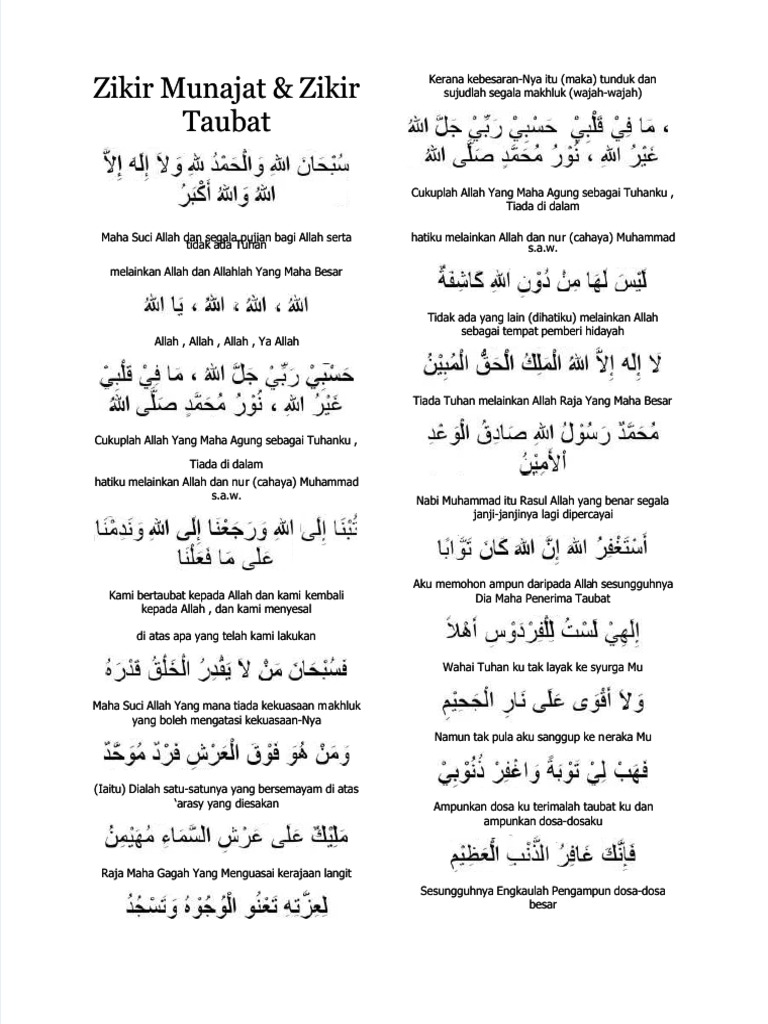 Zikir Munajat & Zikir
Taubat
سُبْحَانَ اللهِ وَالْحَمْدُ لِلهِ وَلاَ إِلَه إِلاَّ
اللهُ وَاللهُ أَكْبَرُ
Maha Suci Allah dan segala pujian bagi Allah serta
tidak ada Tuhan
melainkan Allah dan Allahlah Yang Maha Besar
اللهُ ، اللهُ ، اللهُ ، يَا اللهُ
Allah , Allah , Allah , Ya Allah
حَسْبِيْ رَبِّيْ جَلَّ اللهُ ، مَا فِيْ قَلْبِيْ
غَيْرُ اللهِ ، نُوْرُ مُحَمَّدٍ صَلَّى اللهُ
Cukuplah Allah Yang Maha Agung sebagai Tuhanku ,
Tiada di dalam
hatiku melainkan Allah dan nur (cahaya) Muhammad
s.a.w.
تُبْنَا إِلَى اللهِ وَرَجَعْنَا إِلَى اللهِ وَنَدِمْنَا
عَلَى مَا فَعَلْنَا
Kami bertaubat kepada Allah dan kami kembali
kepada Allah , dan kami menyesal
di atas apa yang telah kami lakukan
فَسُبْحَانَ مَنْ لاَ يَقْدِرُ الْخَلْقُ قَدْرَهُ
Maha Suci Allah Yang mana tiada kekuasaan makhluk
yang boleh mengatasi kekuasaan-Nya
وَمَنْ هُوَ فَوْقَ الْعَرْشِ فَرْدٌ مُوَحَّدٌ
(Iaitu) Dialah satu-satunya yang bersemayam di atas
‘arasy yang diesakan
مَلِيْكٌ عَلَى عَرْشِ السَّمَاءِ مُهَيْمِنُ
Raja Maha Gagah Yang Menguasai kerajaan langit
لِعِزَّتِهِ تَعْنُو الْوُجُوْهُ وَتَسْجُدُ
Kerana kebesaran-Nya itu (maka) tunduk dan
sujudlah segala makhluk (wajah-wajah)
، مَا فِيْ قَلْبِيْ حَسْبِيْ رَبِّيْ جَلَّ اللهُ
غَيْرُ اللهِ ، نُوْرُ مُحَمَّدٍ صَلَّى اللهُ
Cukuplah Allah Yang Maha Agung sebagai Tuhanku ,
Tiada di dalam
hatiku melainkan Allah dan nur (cahaya) Muhammad
s.a.w.
لَيْسَ لَهَا مِنْ دُوْنِ اللهِ كَاشِفَةٌ
Tidak ada yang lain (dihatiku) melainkan Allah
sebagai tempat pemberi hidayah
لَا إِلَه إِلاَّ اللهُ الْمَلِكُ الْحَقُّ الْمُبِيْنُ
Tiada Tuhan melainkan Allah Raja Yang Maha Besar
مُحَمَّدٌ رَسُوْلُ اللهِ صَادِقُ الْوَعْدِ
اْلأَمِيْنُ
Nabi Muhammad itu Rasul Allah yang benar segala
janji-janjinya lagi dipercayai
أَسْتَغْفِرُ اللهَ إِنَّ اللهَ كَانَ تَوَّابًا
Aku memohon ampun daripada Allah sesungguhnya
Dia Maha Penerima Taubat
إِلَهِيْ لَسْتُ لِلْفِرْدَوْسِ أَهْلاً
Wahai Tuhan ku tak layak ke syurga Mu
وَلاَ أَقْوَى عَلَى نَارِ الْجَحِيْمِ
Namun tak pula aku sanggup ke neraka Mu
فَهَبْ لِيْ تَوْبَةً وَاغْفِرْ ذُنُوْبِيْ
Ampunkan dosa ku terimalah taubat ku dan
ampunkan dosa-dosaku
فَإِنَّكَ غَافِرُ الذَّنْبِ الْعَظِيْمِ
Sesungguhnya Engkaulah Pengampun dosa-dosa
besar